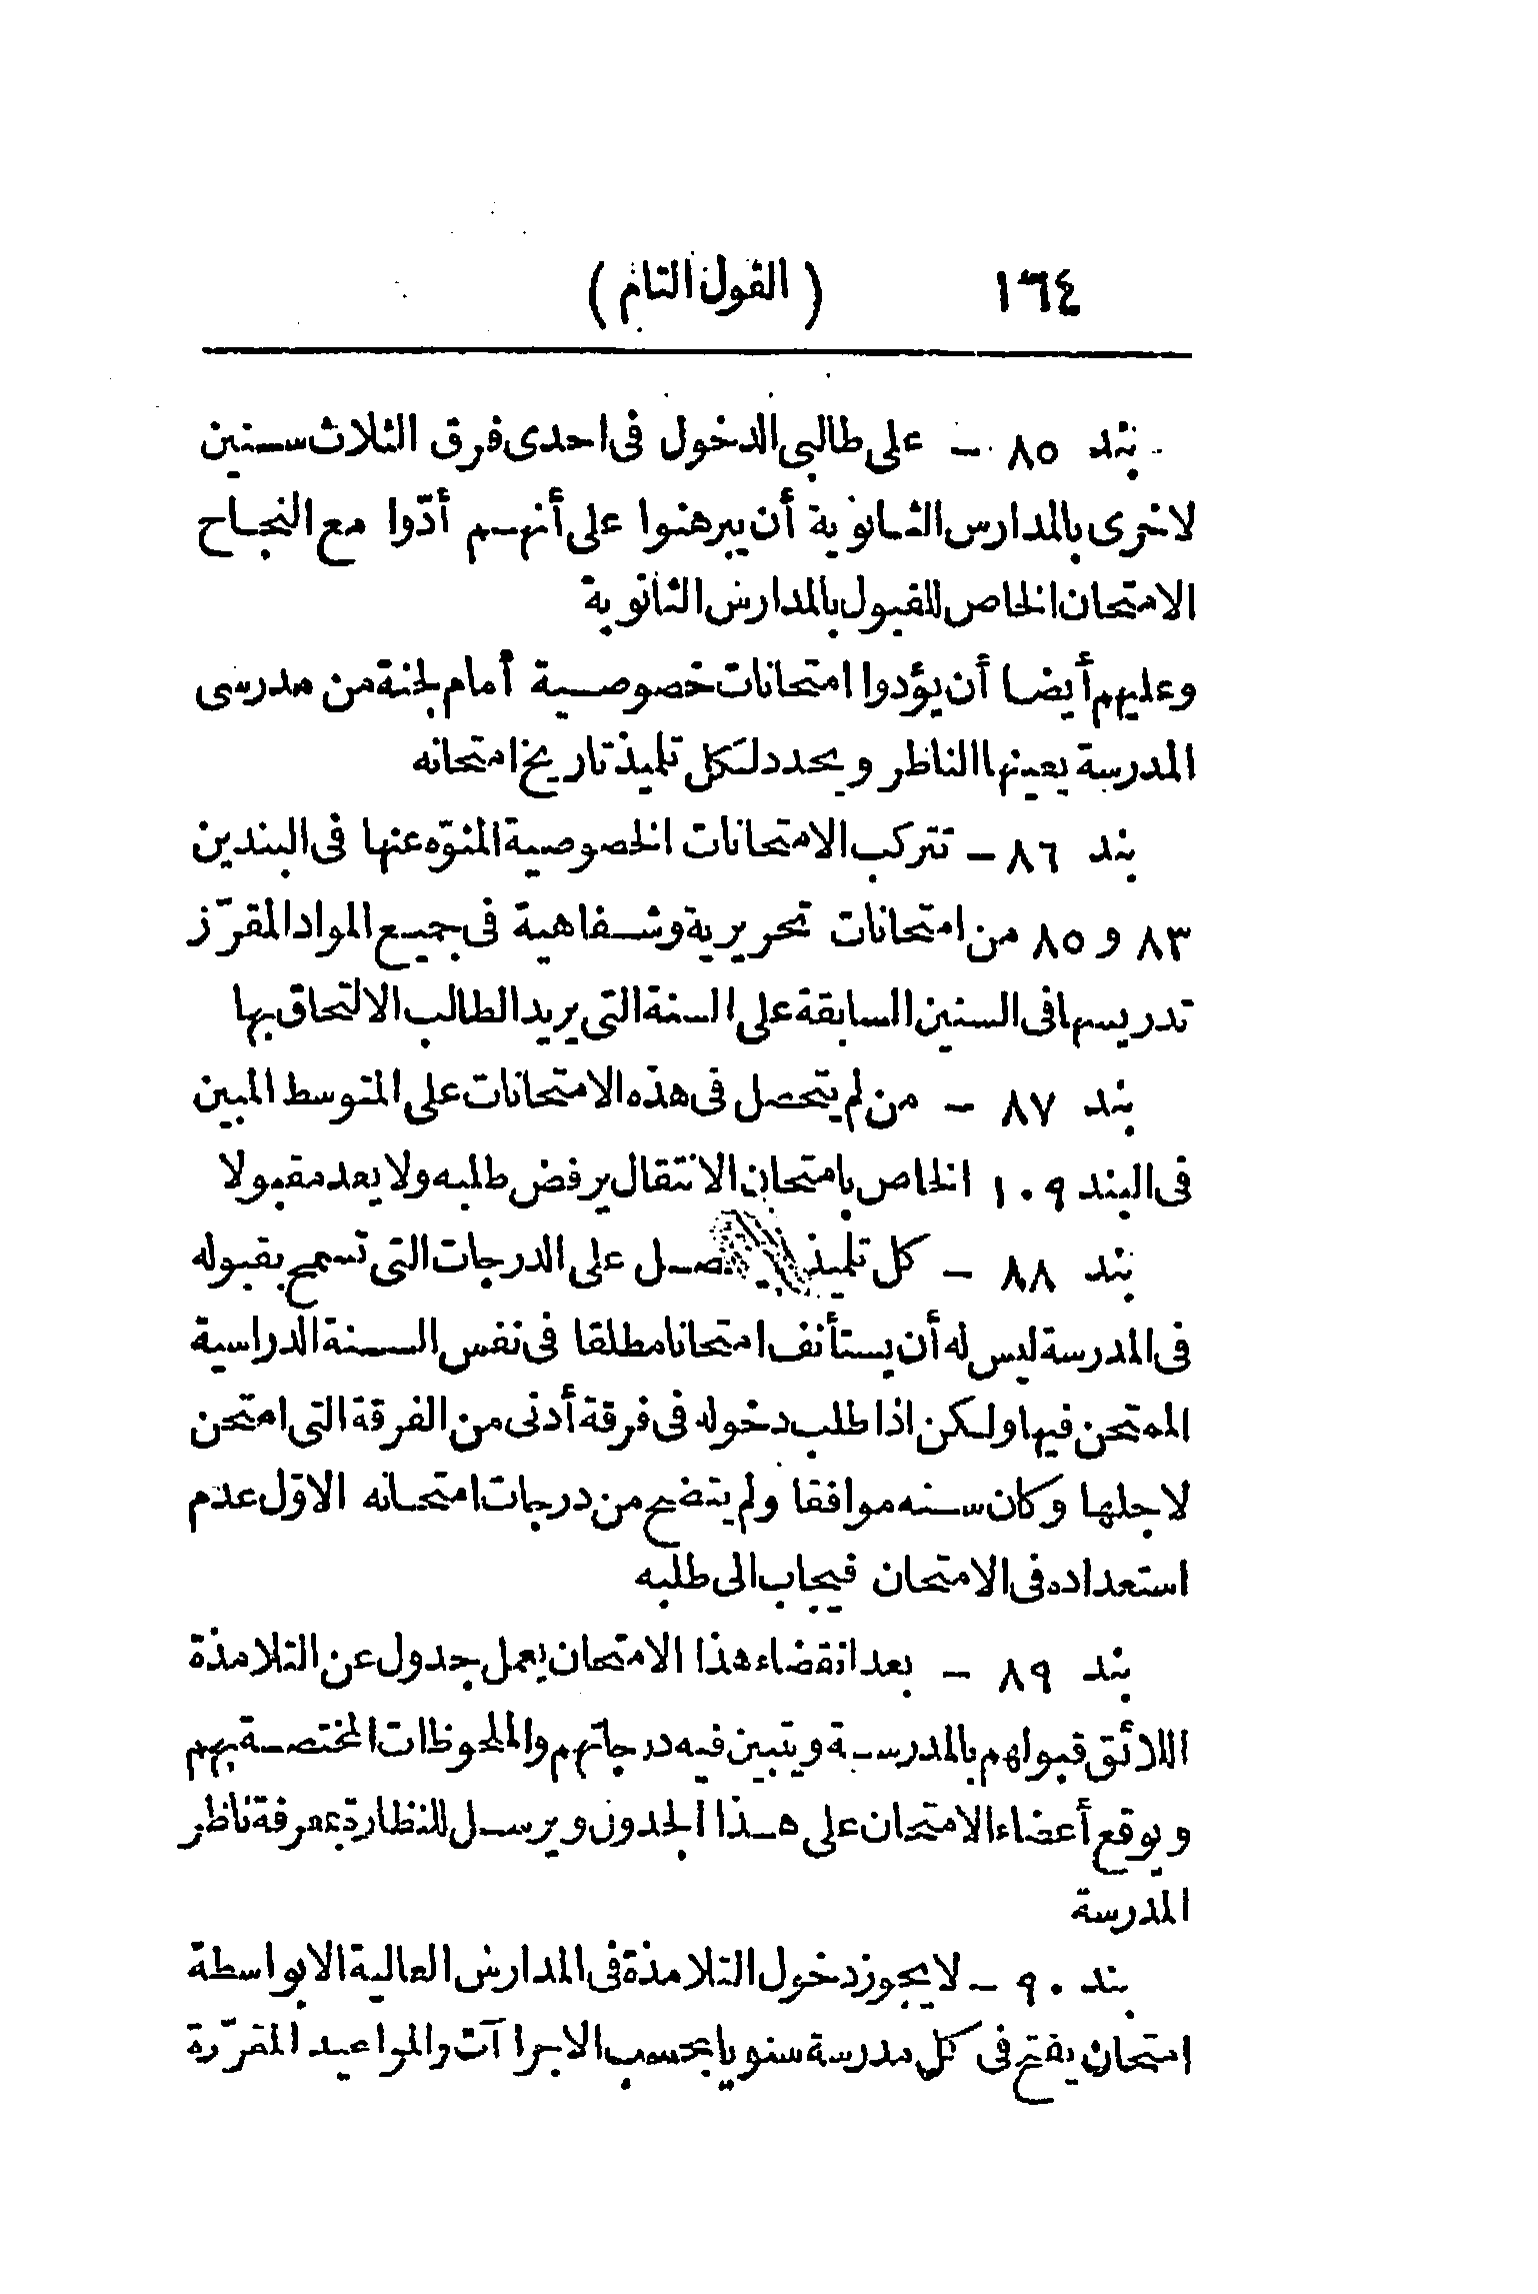 ١٦٤ ( القول التام )
بند ٨٥ - على طالبى الدخول فى احدى فرق الثلاث سنين
لاخرى بالمدارس الثانوية أن يبرهنوا على أنهم أدّوا مع النجاح
الامتحان الخاص للقبول بالمدارس الثانوية
وعليهم أيضا أن يؤدوا امتحانات خصوصية أمام لجنة من مدرسى
المدرسة يعينها الناظر ويحدد لكل تلميذ تاريخ امتحانه
بند ٨٦ - تتركب الامتحانات الخصوصية المنوّه عنها فى البندين
٨٣ و ٨٥ من امتحانات تحريرية وشفاهية فى جميع المواد المقرّر
تدريسها فى السنين السابقة على السنة التى يريد الطالب الالتحاق بها
بند ٨٧ - من لم يتحصل فى هذه الامتحانات على المتوسط المبين
فى البند ١٠٩ الخاص بامتحان الانتقال يرفض طلبه ولا يعد مقبولا
بند ٨٨ - كل تلميذ على الدرجات التى تسمح بقبوله
فى المدرسة ليس له أن يستأنف امتحانا مطلقا فى نفس السنة الدراسية
الممتحن فيها ولكن اذا طلب دخوله فى فرقة أدنى من الفرقة التى امتحن
لاجلها وكان سنه موافقا ولم يتضح من درجات امتحانه الاوّل عدم
استعداده فى الامتحان فيجاب الى طلبه
بند ٨٩ - بعد انقضاء هذا الامتحان يعمل جدول عن التلامذة
اللائق قبولهم بالمدرسة ويتبين فيه درجاتهم والملحوظات المختصة بهم
ويوقع أعضاء الامتحان على هذا الجدول ويرسل للنظارة بمعرفة ناظر
المدرسة
بند ٩٠ - لا يجوز دخول التلامذة فى المدارس العالية الا بواسطة
امتحان يفتح فى كل مدرسة سنويا بحسب الاجراآت والمواعيد المقرّرة